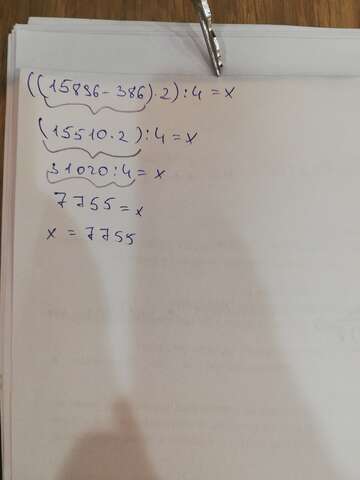 ((15896-386)·2):4=x
(15510·2):4=x
31020:4=x
7755=x
x=7755